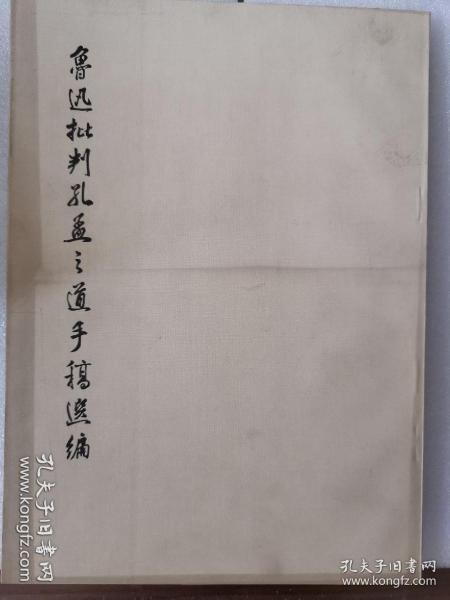 魯迅批判孔孟之道手稿選編
孔夫子旧书网
www.kongfz.com
孔夫子旧书网
www.kongfz.com